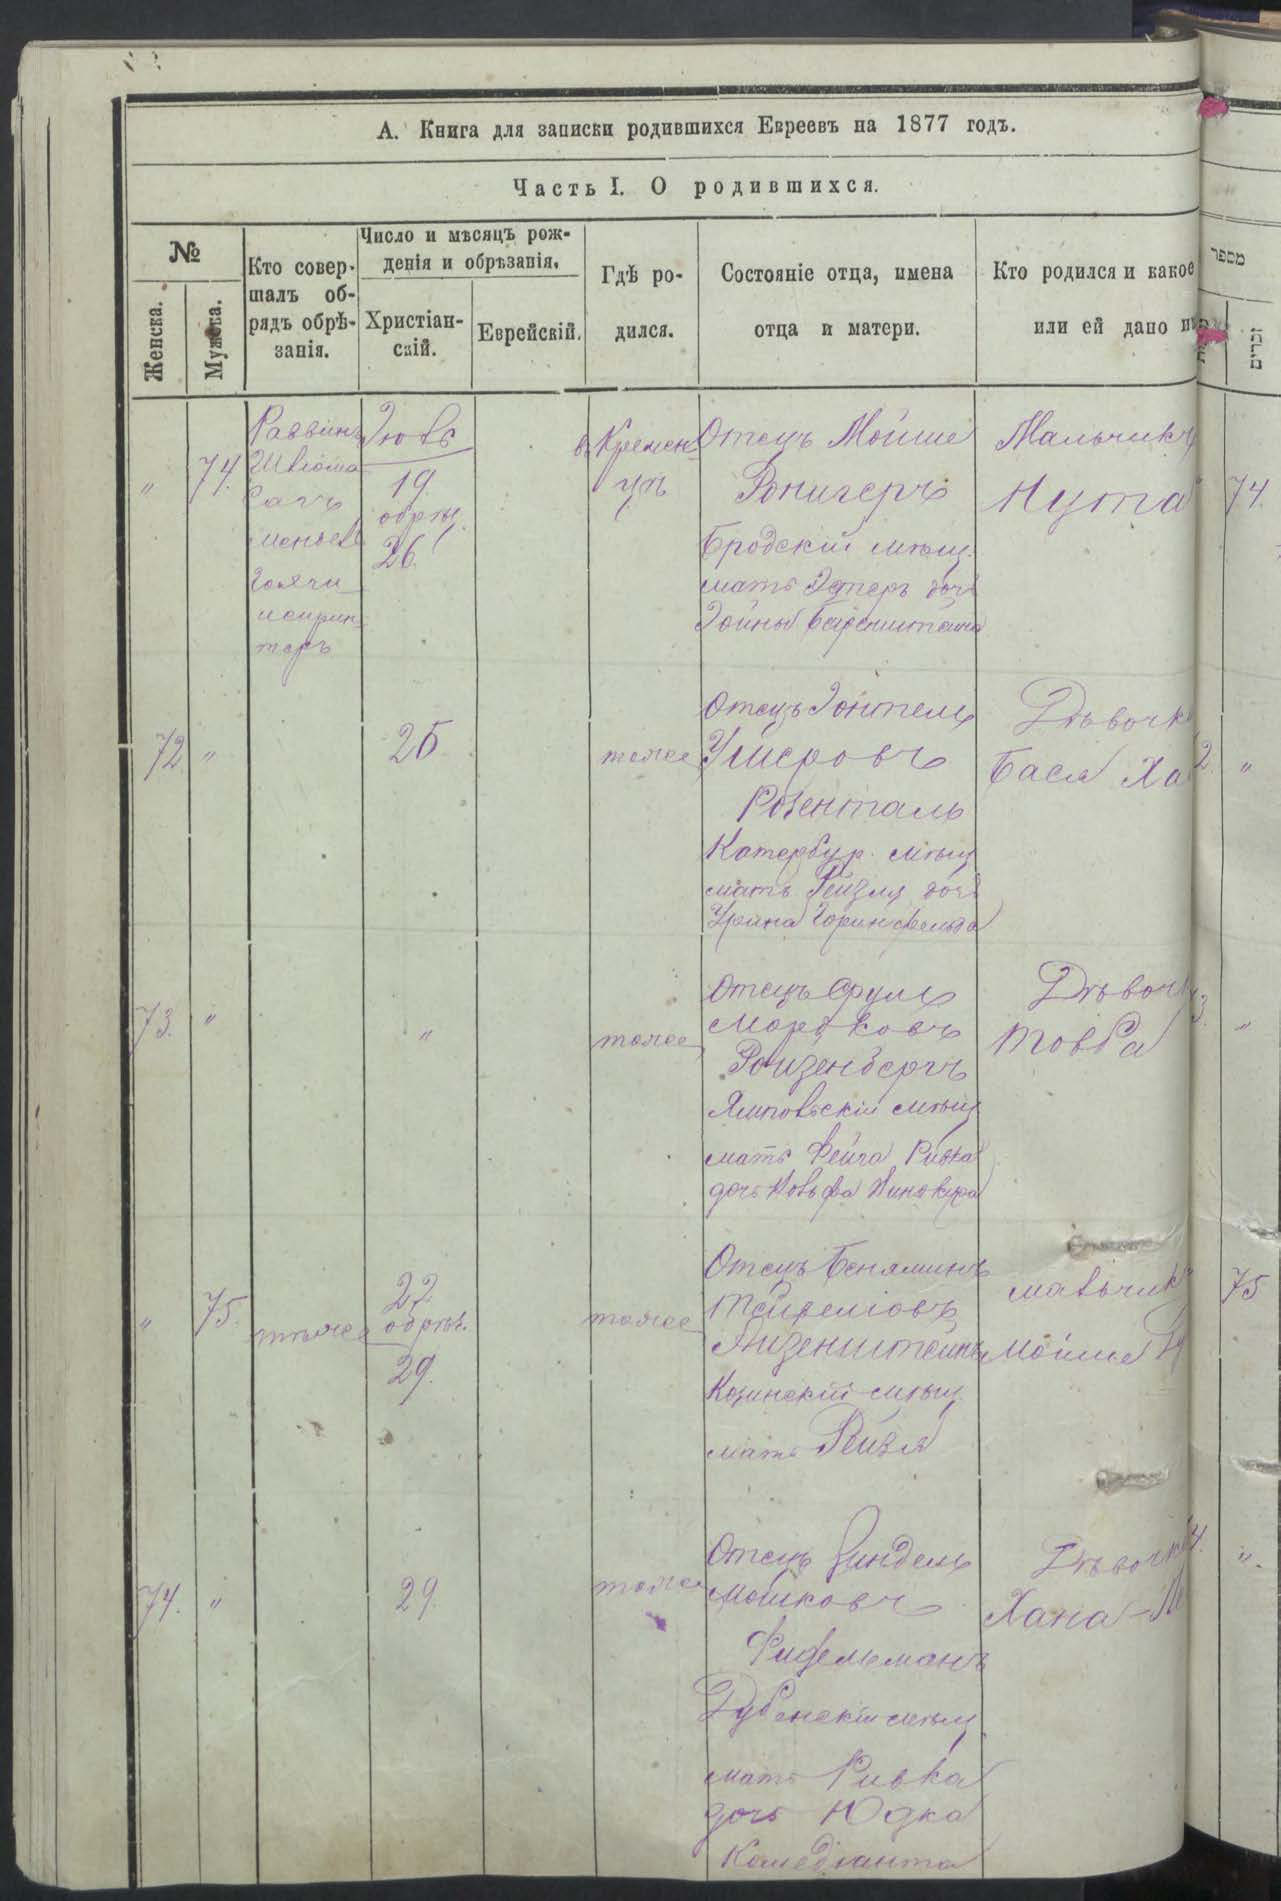 А. Книга для записки родившихся Евреевъ на 1877 годъ.
Часть I. О родившихся.
№
Женска.
Мужска.
Кто совер-
шалъ об-
рядъ обрѣ-
занія.
Число и мѣсяцъ рож-
денія и обрѣзанія.
Христіан-
скій.
Еврейскій.
Гдѣ ро-
дился.
Состояніе отца, имена
отца и матери.
Кто родился и какое
или ей дано
מספר
זכרים
"
74.
Раввинъ
19
обрѣз.
26.
въ Кремен-
цѣ
Отецъ Мойше
Ронигеръ
Бродскій мѣщ.
мать Эстеръ дочь
Мальчикъ
Нута
74.
72.
"
25
тоже
Отецъ
Ушеровъ
Розенталь
Катербур. мѣщ
мать Рейзя дочь
Дѣвочк
Бася Ха
2.
"
73.
"
"
тоже
Отецъ Сруль
Мордковъ
Ройзенбергъ
Ямпольскій мѣщ
мать Фейга Ривка
дочь Вольфа Винокура
Дѣвоч
Товба
3.
"
"
75.
тоже
22
обрѣз.
29.
тоже
Отецъ Беняминъ
Айзенштейнъ
Козинскій мѣщ
мать Рейзя
мальчик
Мойше
75
74.
"
29.
тоже
Отецъ Зиндель
Мошковъ
Фидельманъ
Дубенскій мѣщ
мать Ривка
дочь Юдка
Комедіанта
Дѣвочк
Хана-М
4.
"